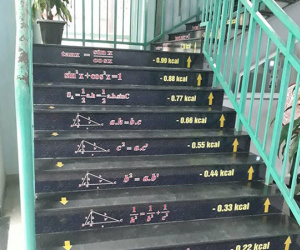 tanx = sinx/cosx - 0.99 kcal
sin²x+cos²x=1 - 0.88 kcal
Sₐ = 1/2 a.h = 1/2 a.b.sinC - 0.77 kcal
a.h = b.c - 0.66 kcal
c² = a.c' - 0.55 kcal
b² = a.b' - 0.44 kcal
1/h² = 1/b² + 1/c² - 0.33 kcal
- 0.22 kcal